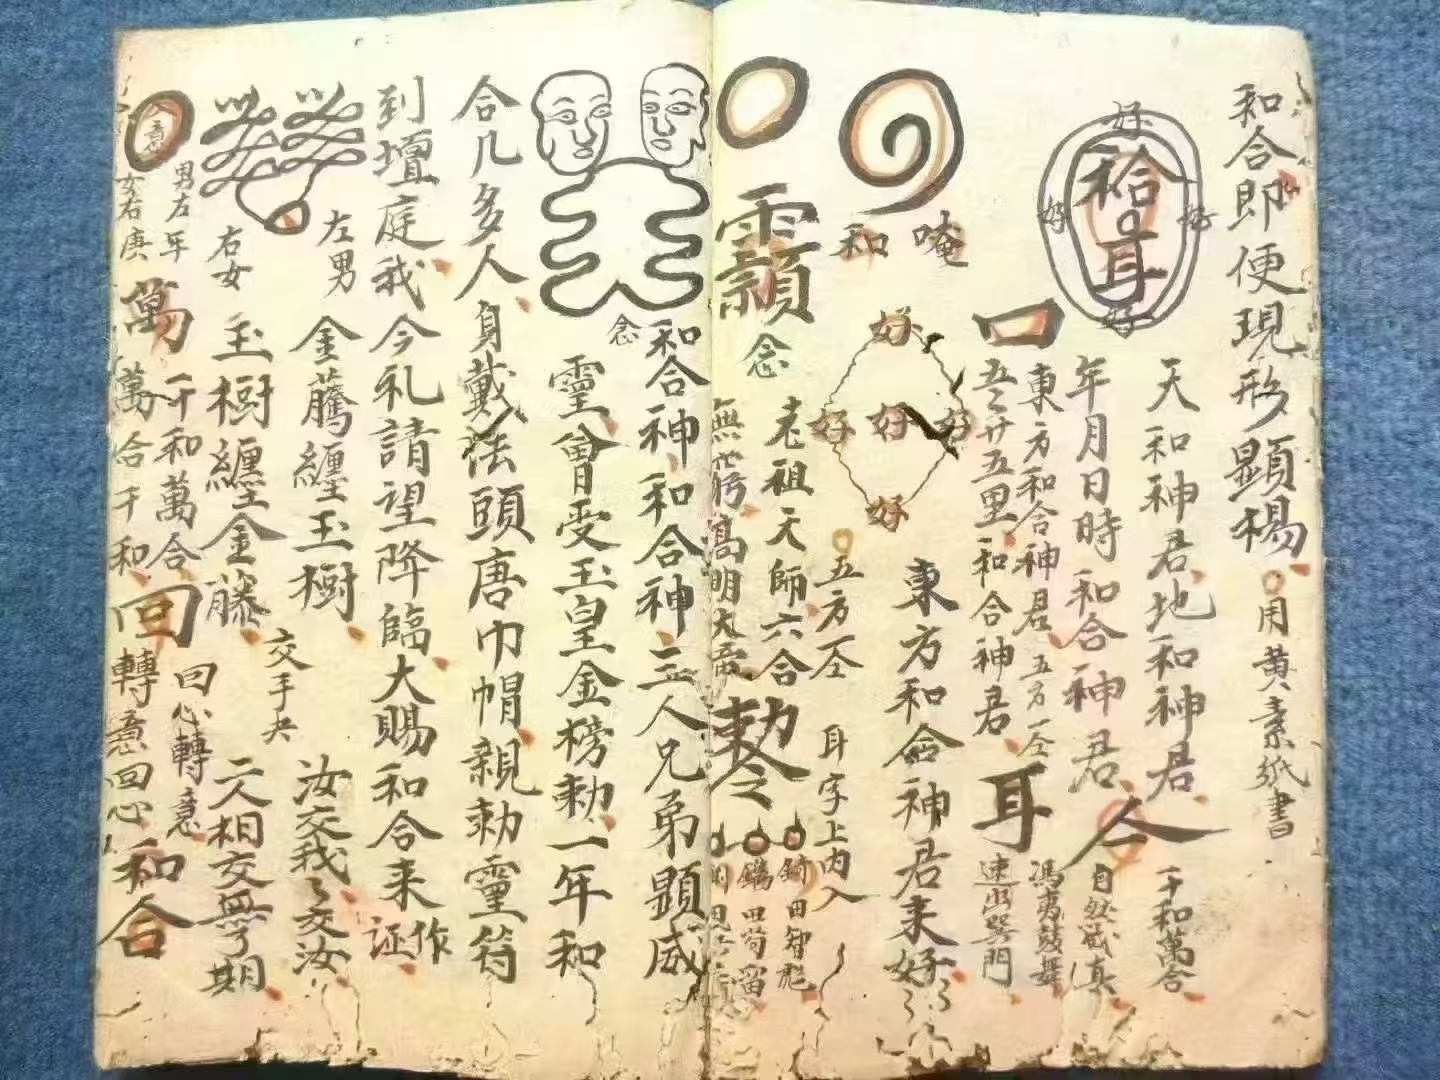 和合即便現形顯楊
用黄素紙書
好
好
好
好
天和神君地和神君
千和萬合
年月日時和合神君
合
自然感真
口
東方和合神君
五方一仝
五之廿五里和合神君
耳
馮夷鼓舞
速出巽門
唵
和
好
好
好
好
好
東方和合神君来好
五方仝
耳字上内入
念
老祖天師六合
無
高明大帝
勅令
和合神和合神三人兄弟顕威
念
靈曾受玉皇金榜勅一年和
合几多人身戴法頭唐巾帽親勅靈符
到壇庭我今礼請望降臨大賜和合来
作证
左男
金藤纏玉樹
交手央
汝交我我交汝
右女
玉樹纏金藤
二人相交無了期
合意
男左年
女右庚
萬
千和萬合
萬合千和
回
回心轉意
轉意回心
和合